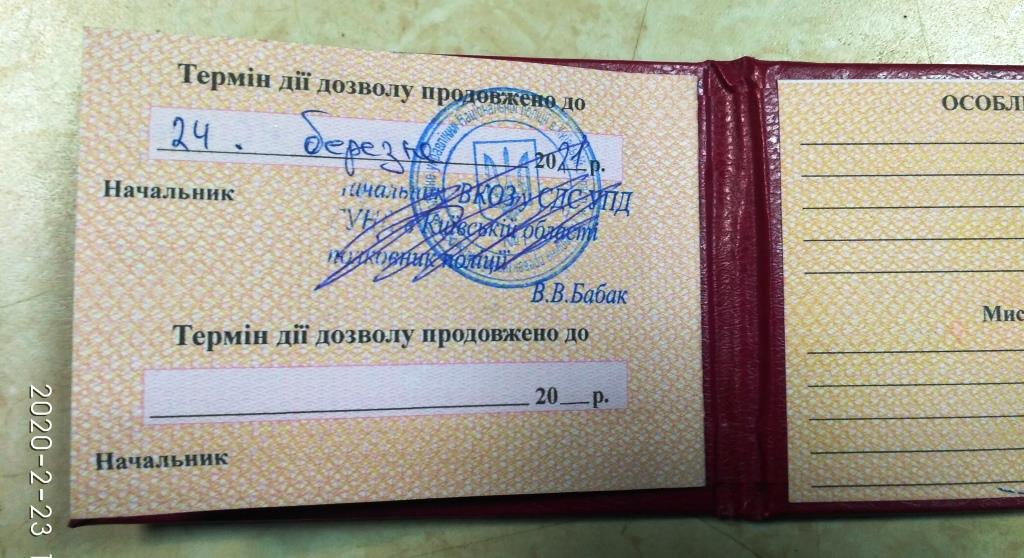 Термін дії дозволу продовжено до
24. березня 2021 р.
Начальник
начальник ВКОЗ СДС УПД
Київській області
полковник поліції
В.В.Бабак
Термін дії дозволу продовжено до
20 р.
Начальник
ОСОБЛ
Мис
2020-2-23 1